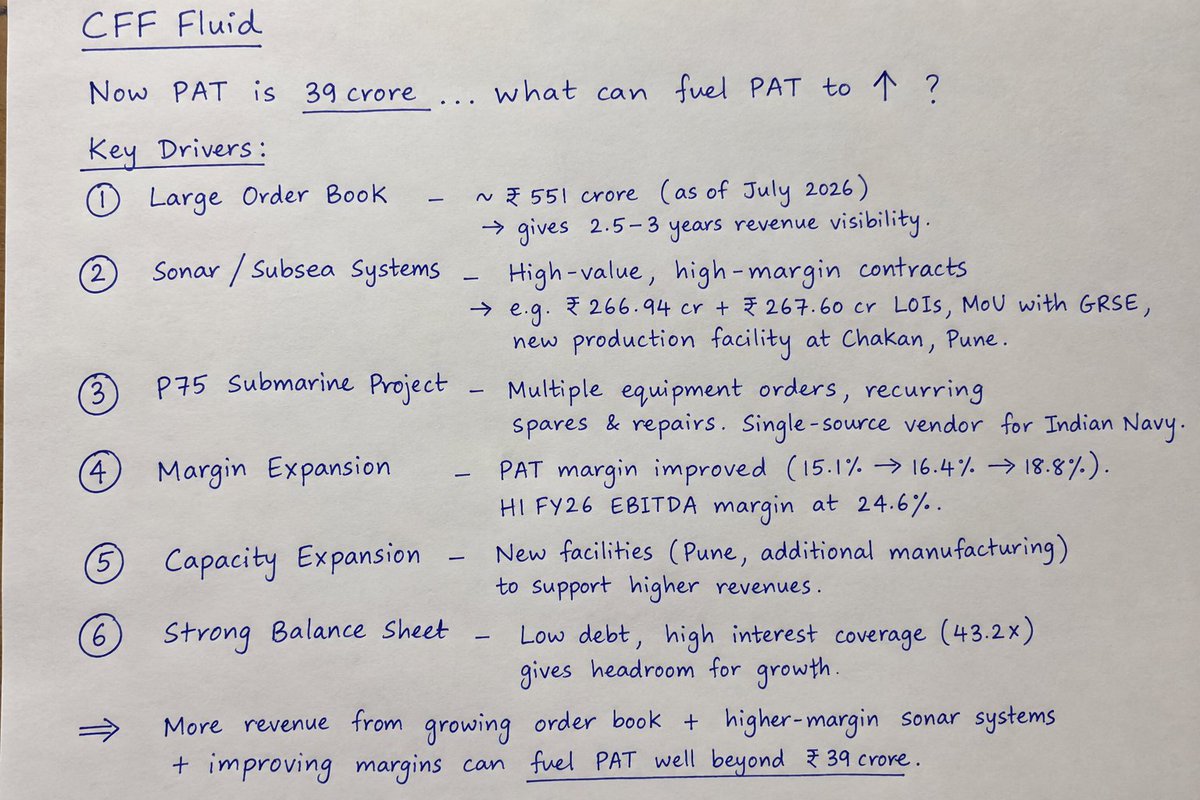 CFF Fluid
Now PAT is 39 crore ... what can fuel PAT to ↑ ?
Key Drivers:
① Large Order Book - ~ ₹ 551 crore (as of July 2026)
→ gives 2.5-3 years revenue visibility.
② Sonar / Subsea Systems - High-value, high-margin contracts
→ e.g. ₹ 266.94 cr + ₹ 267.60 cr LOIs, MoU with GRSE,
new production facility at Chakan, Pune.
③ P75 Submarine Project - Multiple equipment orders, recurring
spares & repairs. Single-source vendor for Indian Navy.
④ Margin Expansion - PAT margin improved (15.1% → 16.4% → 18.8%).
H1 FY26 EBITDA margin at 24.6%.
⑤ Capacity Expansion - New facilities (Pune, additional manufacturing)
to support higher revenues.
⑥ Strong Balance Sheet - Low debt, high interest coverage (43.2x)
gives headroom for growth.
⇒ More revenue from growing order book + higher-margin sonar systems
+ improving margins can fuel PAT well beyond ₹ 39 crore.